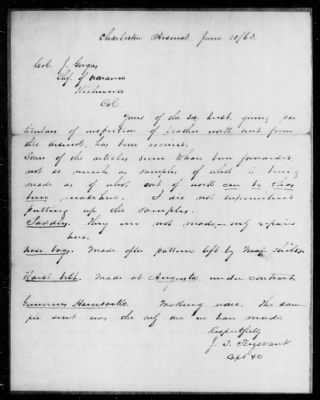 Charleston Arsenal, June 10/63.
Col. J. Gorgas
Chf. of Ordnance
Richmond
Col.
Yours of the inst. giving par-
ticulars of inspection of leather work sent from
this arsenal, has been received.
Some of the articles seem to have been forwarded,
not so much as samples of what is being
made as of what sort of work can be
made here. I did not superintend
putting up the samples.
Saddles. They are not made - only repaired
here.
Nose bag. Made after pattern left by Maj.
Waist belt. Made at Augusta under contract.
Gunners Haversacks. Making none. The sam-
ple sent was the only one we have made
Respectfully
J. T. Trezevant
Capt